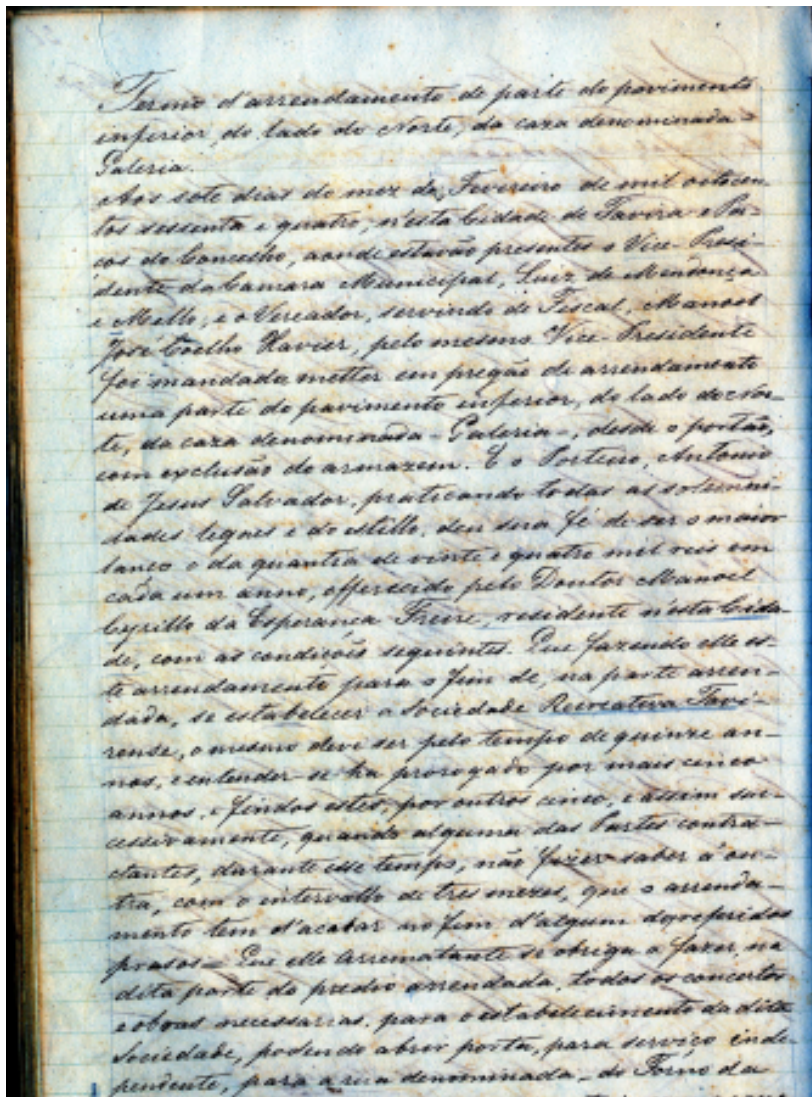 Termo d'arrendamento de parte do pavimento
inferior, do lado do Norte, da caza denominada =
Galeria.
Aos sete dias do mez de Fevereiro de mil oitocen-
tos sessenta e quatro, n'esta Cidade de Tavira e Pa-
ços do Concelho, aonde estavão presentes o Vice-Presi-
dente da Camara Municipal, Luiz de Mendonça
e Mello, e o Vereador, servindo de Fiscal, Manoel
José Coelho Xavier, pelo mesmo Vice-Presidente
foi mandada metter em pregão de arrendamento
uma parte do pavimento inferior, do lado do Nor-
te, da caza denominada - Galeria -, desde o portão,
com exclusão do armazem. E o Porteiro, Antonio
de Jesus Salvador, praticando todas as solemni-
dades legaes e do estillo, deu sua fé de ser o maior
lanço o da quantia de vinte e quatro mil reis em
cada um anno, offerecido pelo Doutor Manoel
Cyrillo da Esperança Freire, residente n'esta Cida-
de, com as condições seguintes. Que fazendo elle es-
te arrendamento para o fim de, na parte arren-
dada, se estabelecer a Sociedade Recreativa Tavi-
rense, o mesmo deve ser pelo tempo de quinze an-
nos, e entender-se-ha prorogado por mais cinco
annos, e findos estes, por outros cinco, e assim suc-
cessivamente, quando alguma das Partes contra-
ctantes, durante esse tempo, não fizer saber á ou-
tra, com o intervallo de tres mezes, que o arrenda-
mento tem d'acabar no fim d'algum dos referidos
prasos = Que elle Arrematante se obriga a fazer, na
dita parte do predio arrendada, todos os concertos
e obras necessarias, para o estabelecimento da dita
Sociedade, podendo abrir porta, para serviço inde-
pendente, para a rua denominada - do Forno da